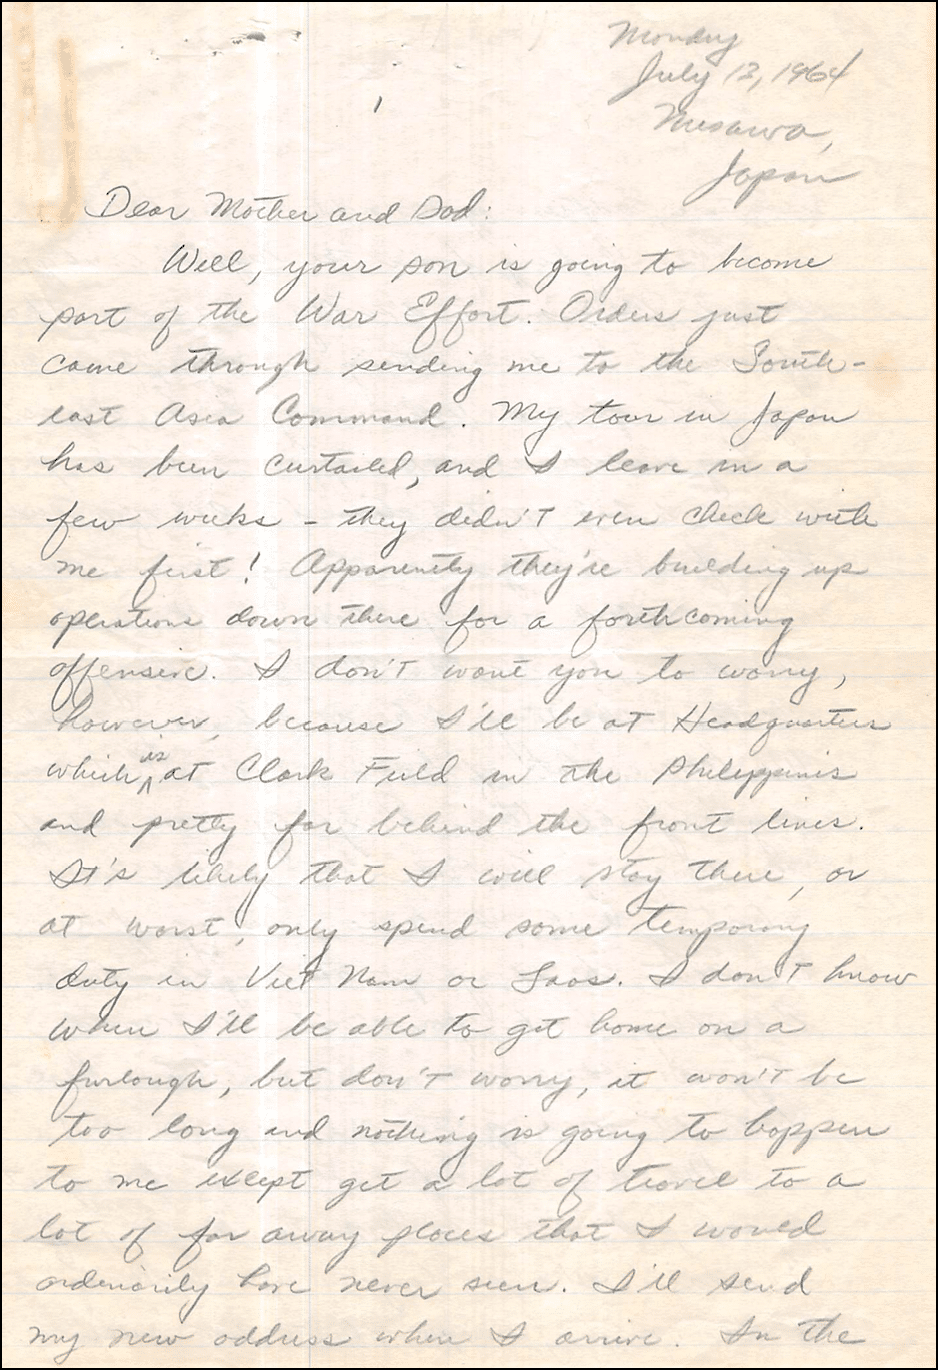 Monday
July 13, 1964
Misawa,
Japan
Dear Mother and Dad:
Well, your son is going to become
part of the War Effort. Orders just
came through sending me to the South-
east Asia Command. My tour in Japan
has been curtailed, and I leave in a
few weeks - they didn't even check with
me first! Apparently they're building up
operations down there for a forthcoming
offensive. I don't want you to worry,
however, because I'll be at Headquarters
which is at Clark Field in the Philippines
and pretty far behind the front lines.
It's likely that I will stay there, or
at worst, only spend some temporary
duty in Viet Nam or Laos. I don't know
when I'll be able to get home on a
furlough, but don't worry, it won't be
too long and nothing is going to happen
to me except get a lot of travel to a
lot of far away places that I would
ordinarily have never seen. I'll send
my new address when I arrive. In the